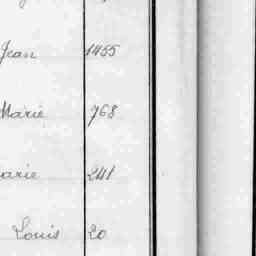 Jean 1455
Marie 768
arie 241
Louis 20